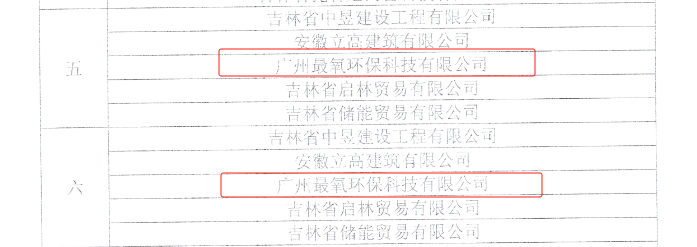 吉林省中昱建设工程有限公司
安徽立高建筑有限公司
五
广州最氧环保科技有限公司
吉林省启林贸易有限公司
吉林省储能贸易有限公司
吉林省中昱建设工程有限公司
安徽立高建筑有限公司
六
广州最氧环保科技有限公司
吉林省启林贸易有限公司
吉林省储能贸易有限公司